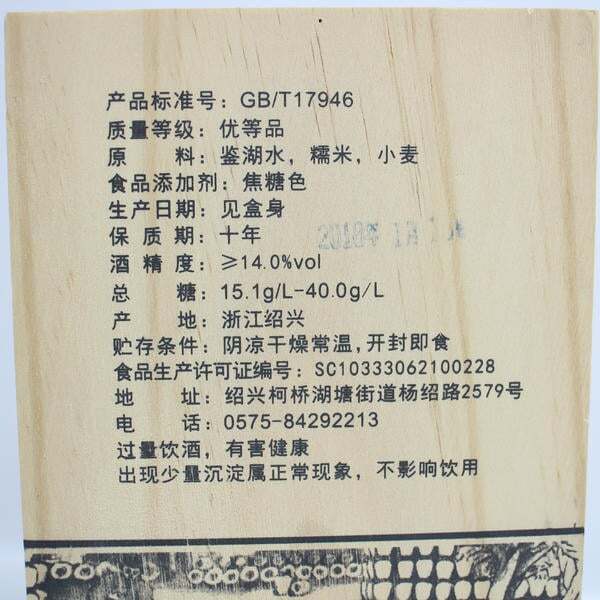 产品标准号：GB/T17946
质量等级：优等品
原　　料：鉴湖水，糯米，小麦
食品添加剂：焦糖色
生产日期：见盒身
保 质 期：十年
酒 精 度：≥14.0%vol
总　　糖：15.1g/L-40.0g/L
产　　地：浙江绍兴
贮存条件：阴凉干燥常温,开封即食
食品生产许可证编号：SC10333062100228
地　　址：绍兴柯桥湖塘街道杨绍路2579号
电　　话：0575-84292213
过量饮酒，有害健康
出现少量沉淀属正常现象，不影响饮用